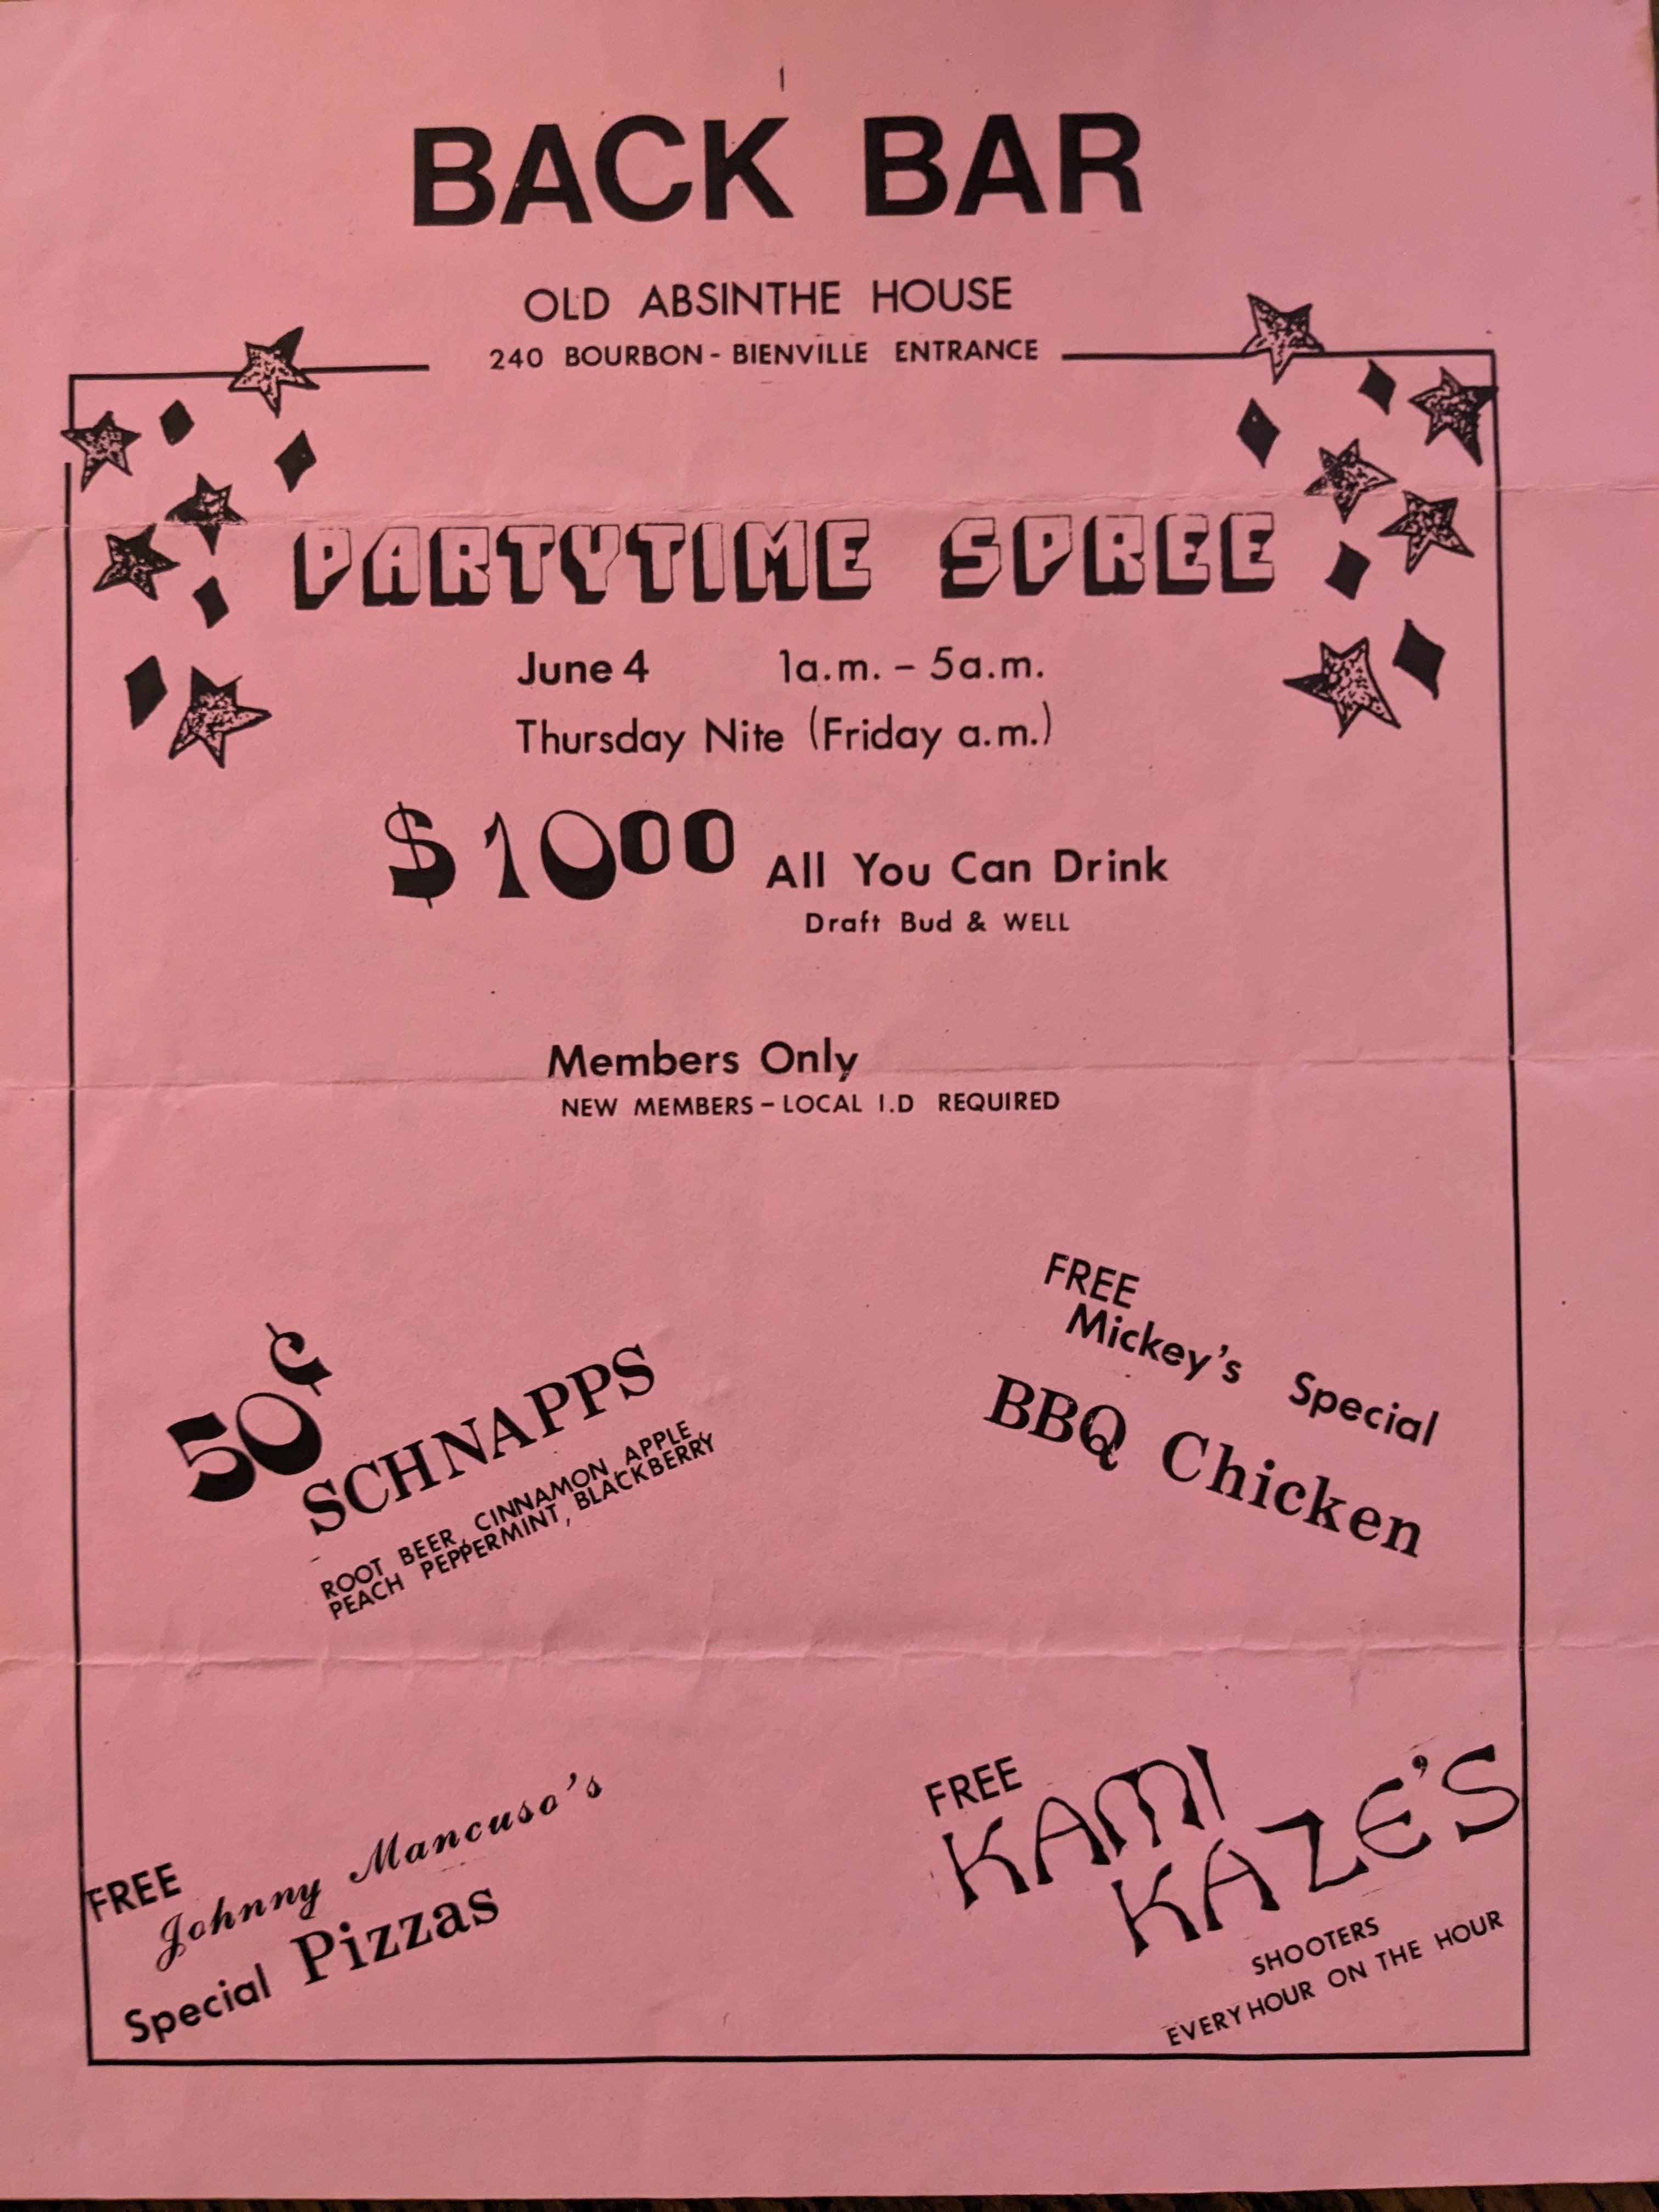 BACK BAR
OLD ABSINTHE HOUSE
240 BOURBON - BIENVILLE ENTRANCE
PARTYTIME SPREE
June 4 1a.m. - 5a.m.
Thursday Nite (Friday a.m.)
$1000 All You Can Drink
Draft Bud & WELL
Members Only
NEW MEMBERS - LOCAL I.D REQUIRED
50¢
SCHNAPPS
ROOT BEER, CINNAMON APPLE
PEACH PEPPERMINT, BLACKBERRY
FREE
Mickey's Special
BBQ Chicken
FREE
Johnny Mancuso's
Special Pizzas
FREE
KAMI
KAZE'S
SHOOTERS
EVERY HOUR ON THE HOUR